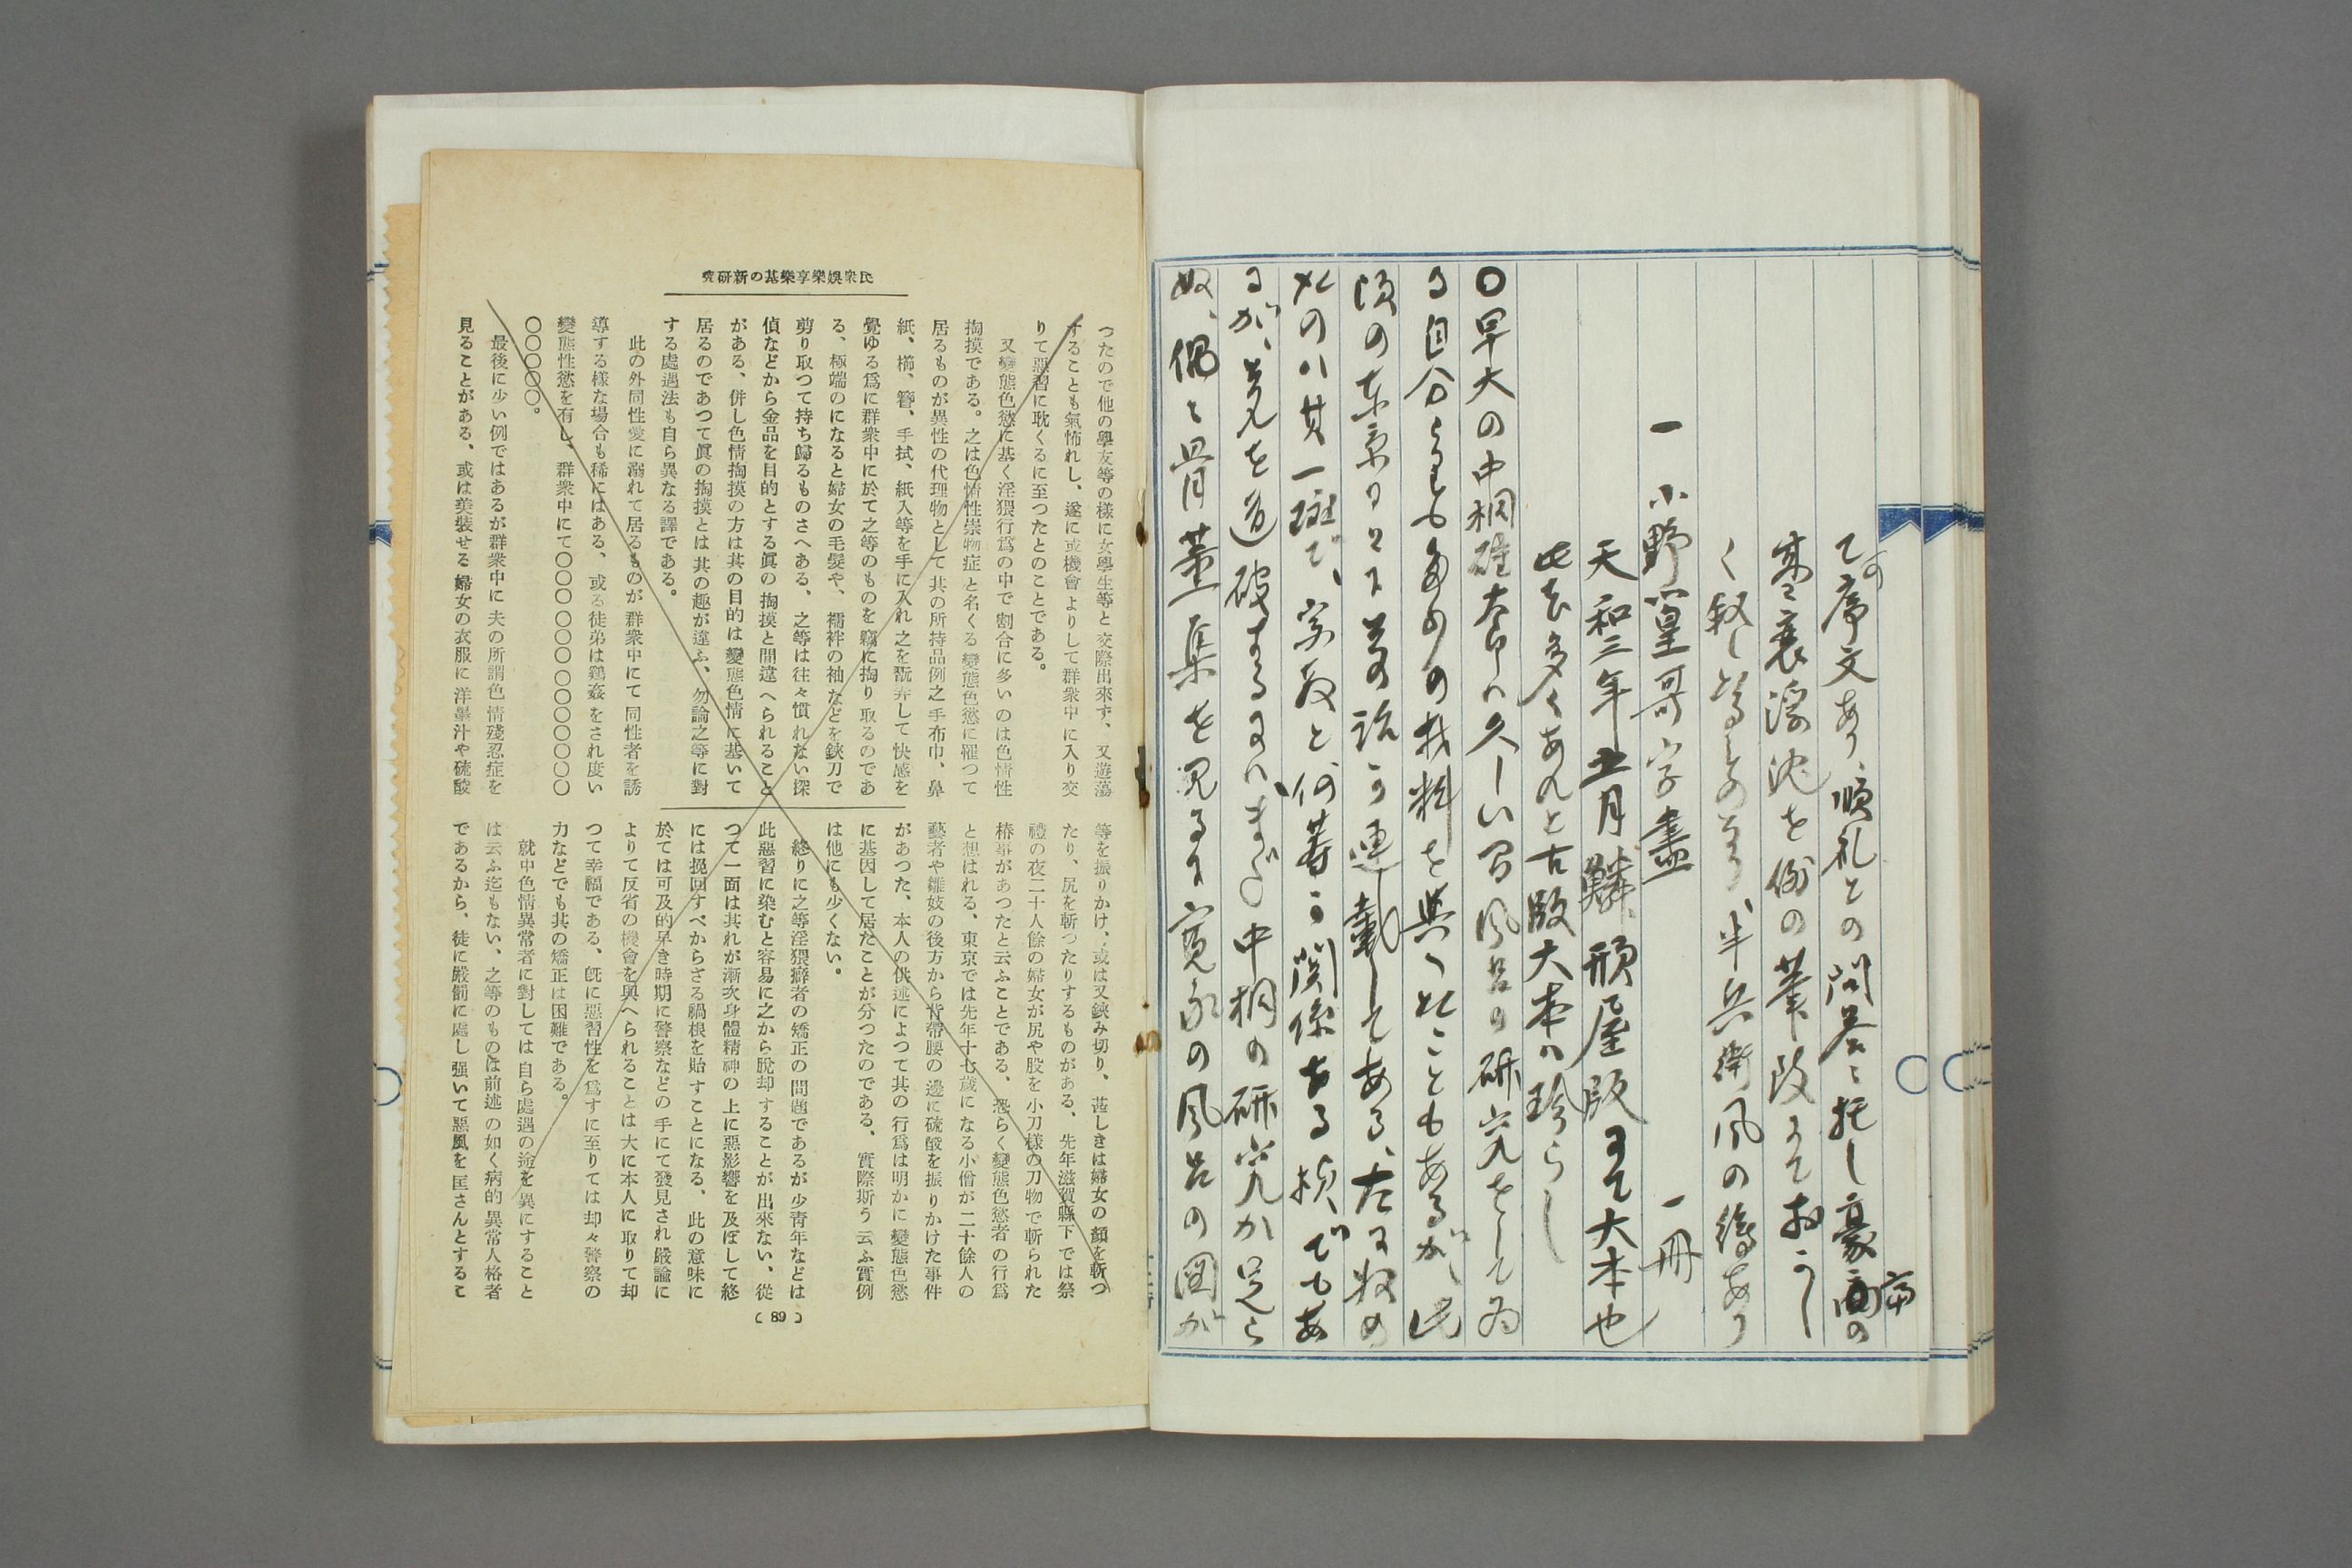 ての序文あり、順礼との問答に托し豪商の
盛衰浮沈を例の筆致にておかし
く叙し
半兵衛
一 小野篁哥字盡 一冊
天和三年五月鱗形屋版にて大本也
此書多くあれど古版大本ハ珍らし
〇早大の中桐確太郎ハ久しい間風呂の研究をしてゐ
る自分らも多少の材料を與へたこともあるが、此
頃の東京日日に其の話を連載してある、左に収め
たのハ其一斑で、宗教と何等か関係ある様でもあ
るが、其を道破するに
中桐の研究が足ら
ぬ、偶々骨董集を見るに寛永の風呂の図が
民衆娯樂享樂甚の新研究
つたので他の學友等の樣に女學生等と交際出來ず、又遊蕩
することも氣怖れし、遂に或機會よりして群衆中に入り交
りて惡習に耽くるに至つたとのことである。
又變態色慾に基く淫猥行爲の中で割合に多いのは色情性
掏摸である。之は色情性崇物症と名くる變態色慾に罹つて
居るものが異性の代理物として其の所持品例之手布巾、鼻
紙、櫛、簪、手拭、紙入等を手に入れ之を翫弄して快感を
覺ゆる爲に群衆中に於て之等のものを竊に掏り取るのであ
る、極端のになると婦女の毛髮や、襦袢の袖などを鋏刀で
剪り取つて持ち歸るものさへある、之等は往々慣れない探
偵などから金品を目的とする眞の掏摸と間違へられること
がある、併し色情掏摸の方は其の目的は變態色情に基いて
居るのであつて眞の掏摸とは其の趣が違ふ、勿論之等に對
する處遇法も自ら異なる譯である。
此の外同性愛に溺れて居るものが群衆中にて同性者を誘
導する樣な場合も稀にはある、或る徒弟は鷄姦をされ度い
變態性慾を有し、群衆中にて〇〇〇〇〇〇〇〇〇〇〇〇
〇〇〇〇〇。
最後に少い例ではあるが群衆中に夫の所謂色情殘忍症を
見ることがある、或は美裝せる婦女の衣服に洋墨汁や硫酸
等を振りかけ、或は又鋏み切り、甚しきは婦女の顏を斬つ
たり、尻を斬つたりするものがある、先年滋賀縣下では祭
禮の夜二十人餘の婦女が尻や股を小刀樣の刀物で斬られた
椿事があつたと云ふことである、恐らく變態色慾者の行爲
と想はれる、東京では先年十七歲になる小僧が二十餘人の
藝者や雛妓の後方から背帶腰の邊に硫酸を振りかけた事件
があつた、本人の供述によつて其の行爲は明かに變態色慾
に基因して居たことが分つたのである、實際斯う云ふ實例
は他にも少くない。
終りに之等淫猥癖者の矯正の問題であるが少靑年などは
此惡習に染むと容易に之から脫却することが出來ない、從
つて一面は其れが漸次身體精神の上に惡影響を及ぼして終
には挽回すべからざる禍根を貽すことになる、此の意味に
於ては可及的早き時期に警察などの手にて發見され嚴諭に
よりて反省の機會を與へられることは大に本人に取りて却
つて幸福である、旣に惡習性を爲すに至りては却々警察の
力などでも其の矯正は困難である。
就中色情異常者に對しては自ら處遇の途を異にすること
は云ふ迄もない、之等のものは前述の如く病的異常人格者
であるから、徒に嚴罰に處し强いて惡風を匡さんとするこ
( 89 )